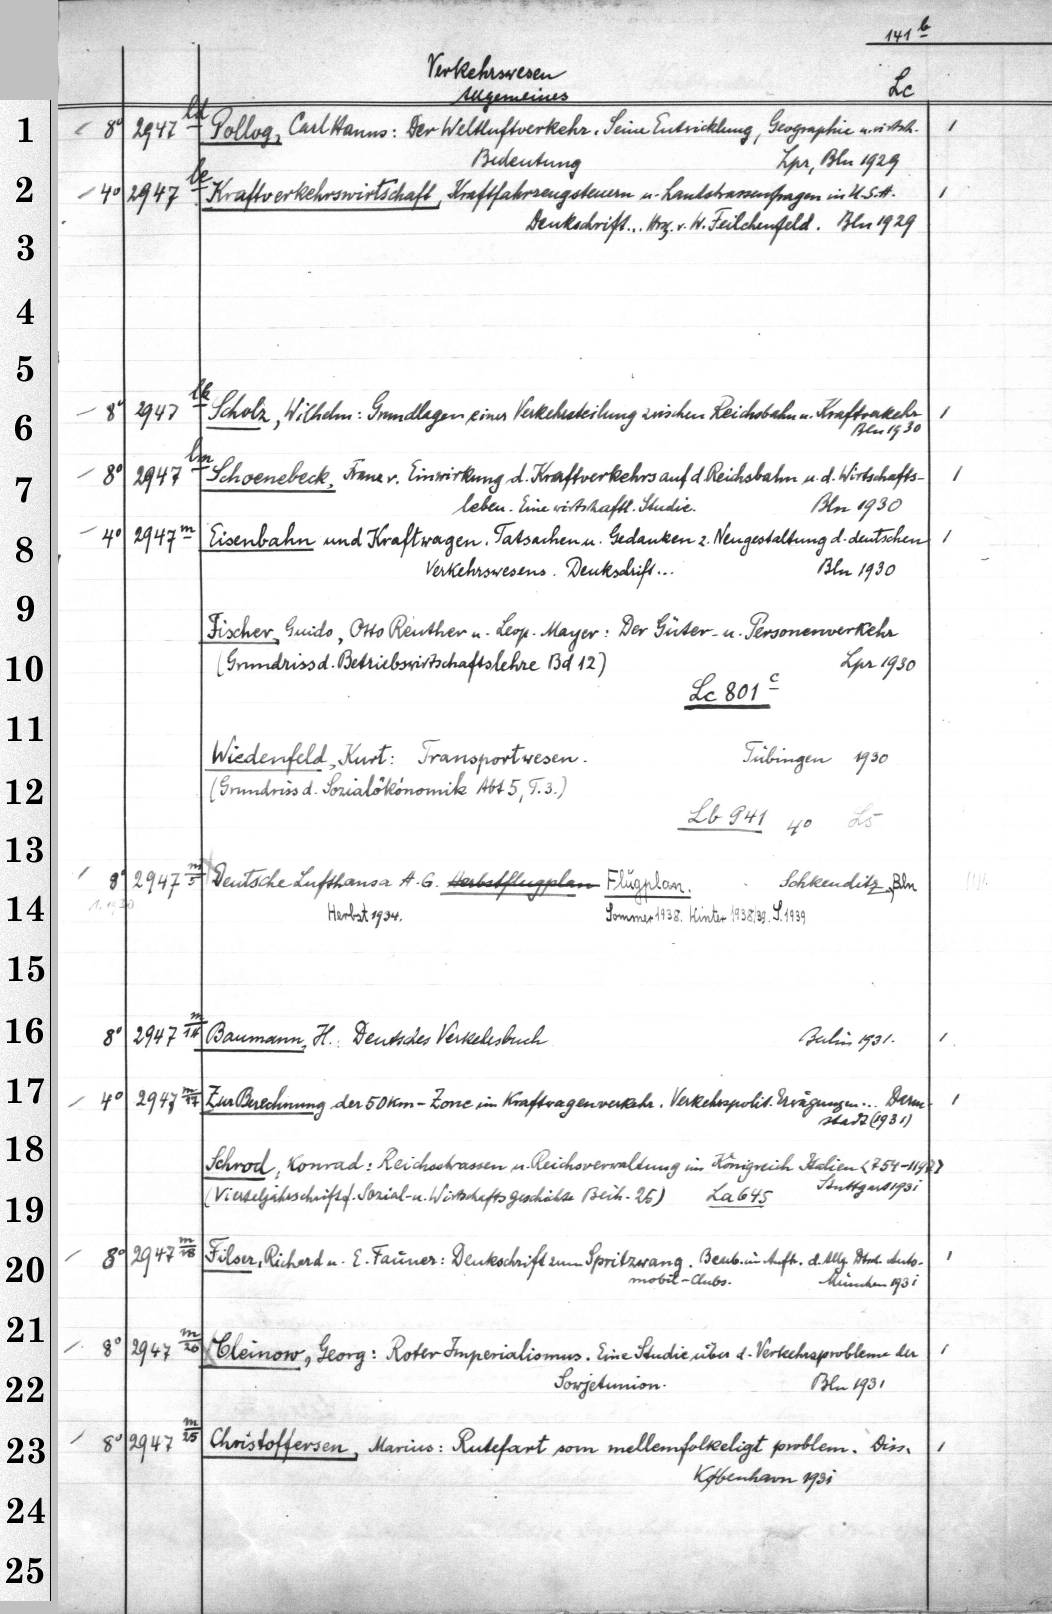 141 b
Verkehrswesen
Allgemeines
Lc
1 8° 2947 ld Pollog, Carl Hanns: Der Weltluftverkehr. Seine Entwicklung, Geographie u. wirtsch. 1
Bedeutung Lpz, Bln 1929
2 4° 2947 le Kraftverkehrswirtschaft, Kraftfahrzeugsteuern u. Landstrassenfragen in U.S.A. 1
3 Denkschrift... Hrg. v. W. Feilchenfeld. Bln 1929
4
5
6 8° 2947 lk Scholz, Wilhelm: Grundlagen einer Verkehrsteilung zwischen Reichsbahn u. Kraftverkehr 1
Bln 1930
7 8° 2947 lm Schoenebeck, Franz v. Einwirkung d. Kraftverkehrs auf d. Reichsbahn u. d. Wirtschafts- 1
leben. Eine wirtschaftl. Studie. Bln 1930
8 4° 2947 m Eisenbahn und Kraftwagen. Tatsachen u. Gedanken z. Neugestaltung d. deutschen 1
Verkehrswesens. Denkschrift... Bln 1930
9 Fischer, Guido, Otto Reuther u. Leop. Mayer: Der Güter- u. Personenverkehr
10 (Grundriss d. Betriebswirtschaftslehre Bd 12) Lpz 1930
Lc 801 c
11 Wiedenfeld, Kurt: Transportwesen. Tübingen 1930
12 (Grundriss d. Sozialökonomik Abt 5, T. 3.)
Lb 941 4° L5
13
8° 2947 m/5 Deutsche Lufthansa A.G. Herbstflugplan Flugplan. Schkeuditz, Bln
14 Herbst 1934. Sommer 1938. Winter 1938/39. S. 1939
15
16 8° 2947 m/14 Baumann, H.: Deutsches Verkehrsbuch Berlin 1931. 1
17 4° 2947 m/17 Zur Berechnung der 50 km-Zone im Kraftwagenverkehr. Verkehrspolit. Erwägungen... Darm- 1
stadt (1931)
18 Schrod, Konrad: Reichsstrassen u. Reichsverwaltung im Königreich Italien <754-1197>
Stuttgart 1931
19 (Vierteljahrschrift f. Sozial- u. Wirtschaftsgeschichte Beih. 25) La 645
20 8° 2947 m/18 Filser, Richard u. E. Fauner: Denkschrift zum Spritzwang. Bearb. im Auftr. d. Allg. Dtsch. Auto- 1
mobil-Clubs. München 1931
21
8° 2947 m/20 Cleinow, Georg: Roter Imperialismus. Eine Studie über d. Verkehrsprobleme der 1
22 Sowjetunion. Bln 1931
23 8° 2947 m/25 Christoffersen, Marius: Rutefart som mellemfolkeligt problem. Diss. 1
København 1931
24
25